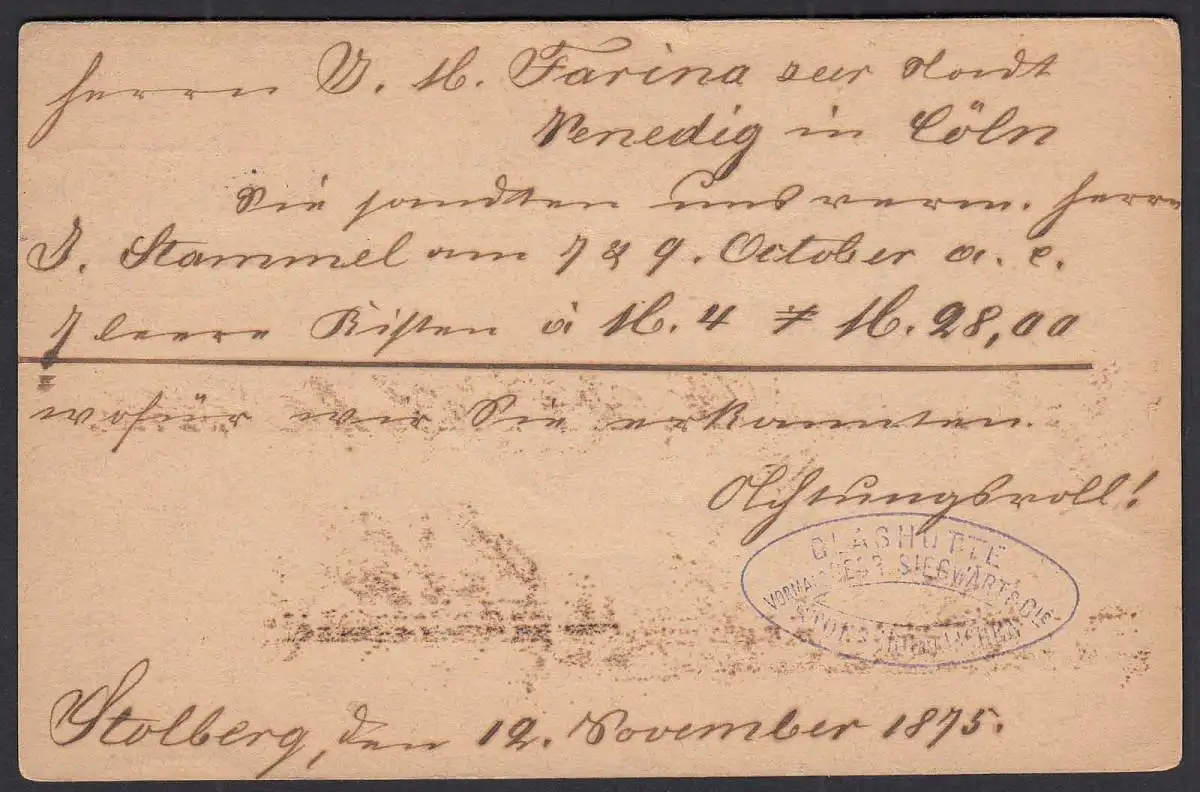 Herrn J. M. Farina zur Stadt
Venedig in Cöln
Sie sandten uns verm. Herrn
J. Stammel am 7 & 9. October a. c.
7 leere Kisten à M. 4 M. 28,00
wofür wir Sie erkannten.
Achtungsvoll!
GLASHÜTTE
VORMALS GEBR. SIEGWART & CIE.
STOLBERG
Stolberg, den 12. November 1875.